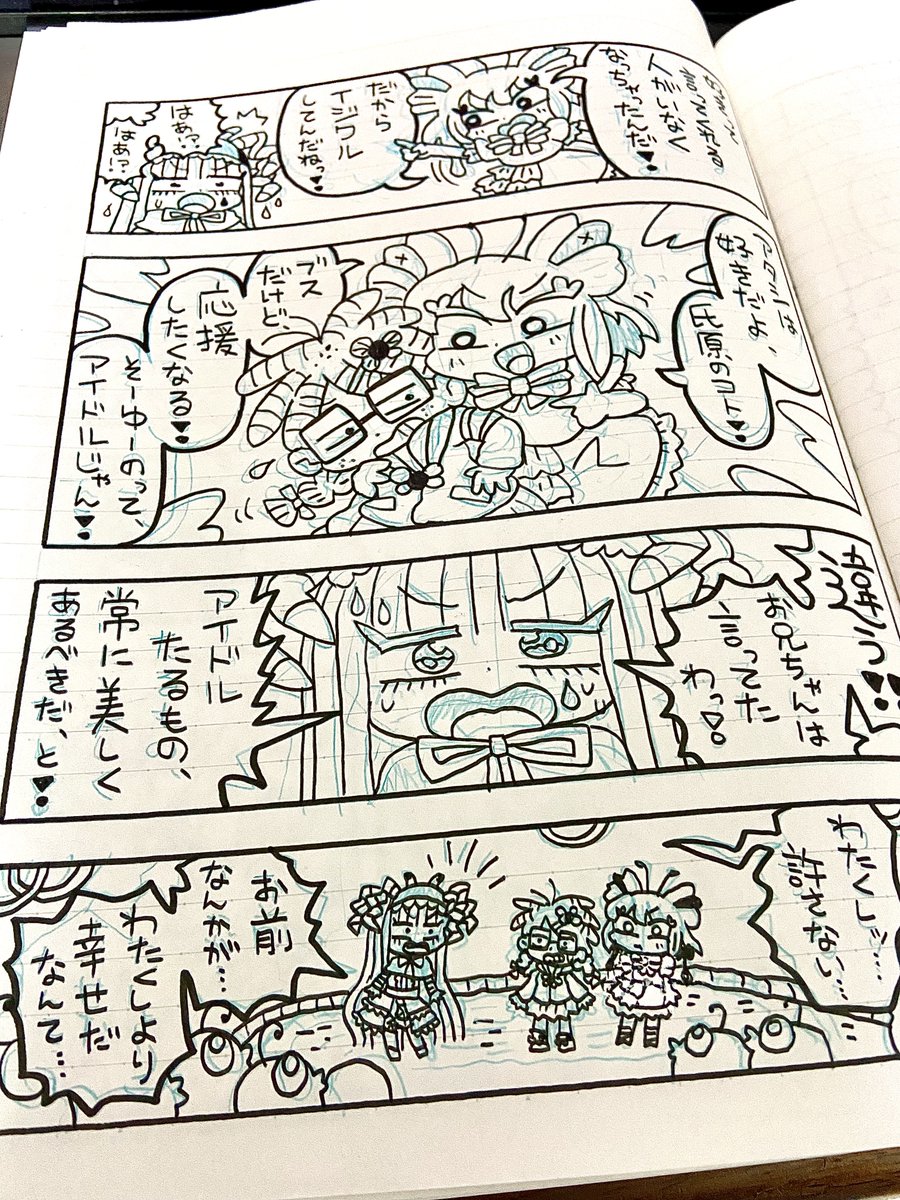 人がいなく
なっちゃったんだ♥
だから
イジワル
してんだねっ♥
はあっ?
はあ!?
アタシは
好きだよ、
氏原のコト♥
ブス
だけど、
応援
したくなる♥
そーゆーのって、
アイドルじゃん♥
違うっ!!
お兄ちゃんは
言ってた
わっ!
アイドル
たるもの、
常に美しく
あるべきだ、と♥
わたくしッ…
許さない…
お前
なんかが…
わたくしより
幸せだ
なんて…